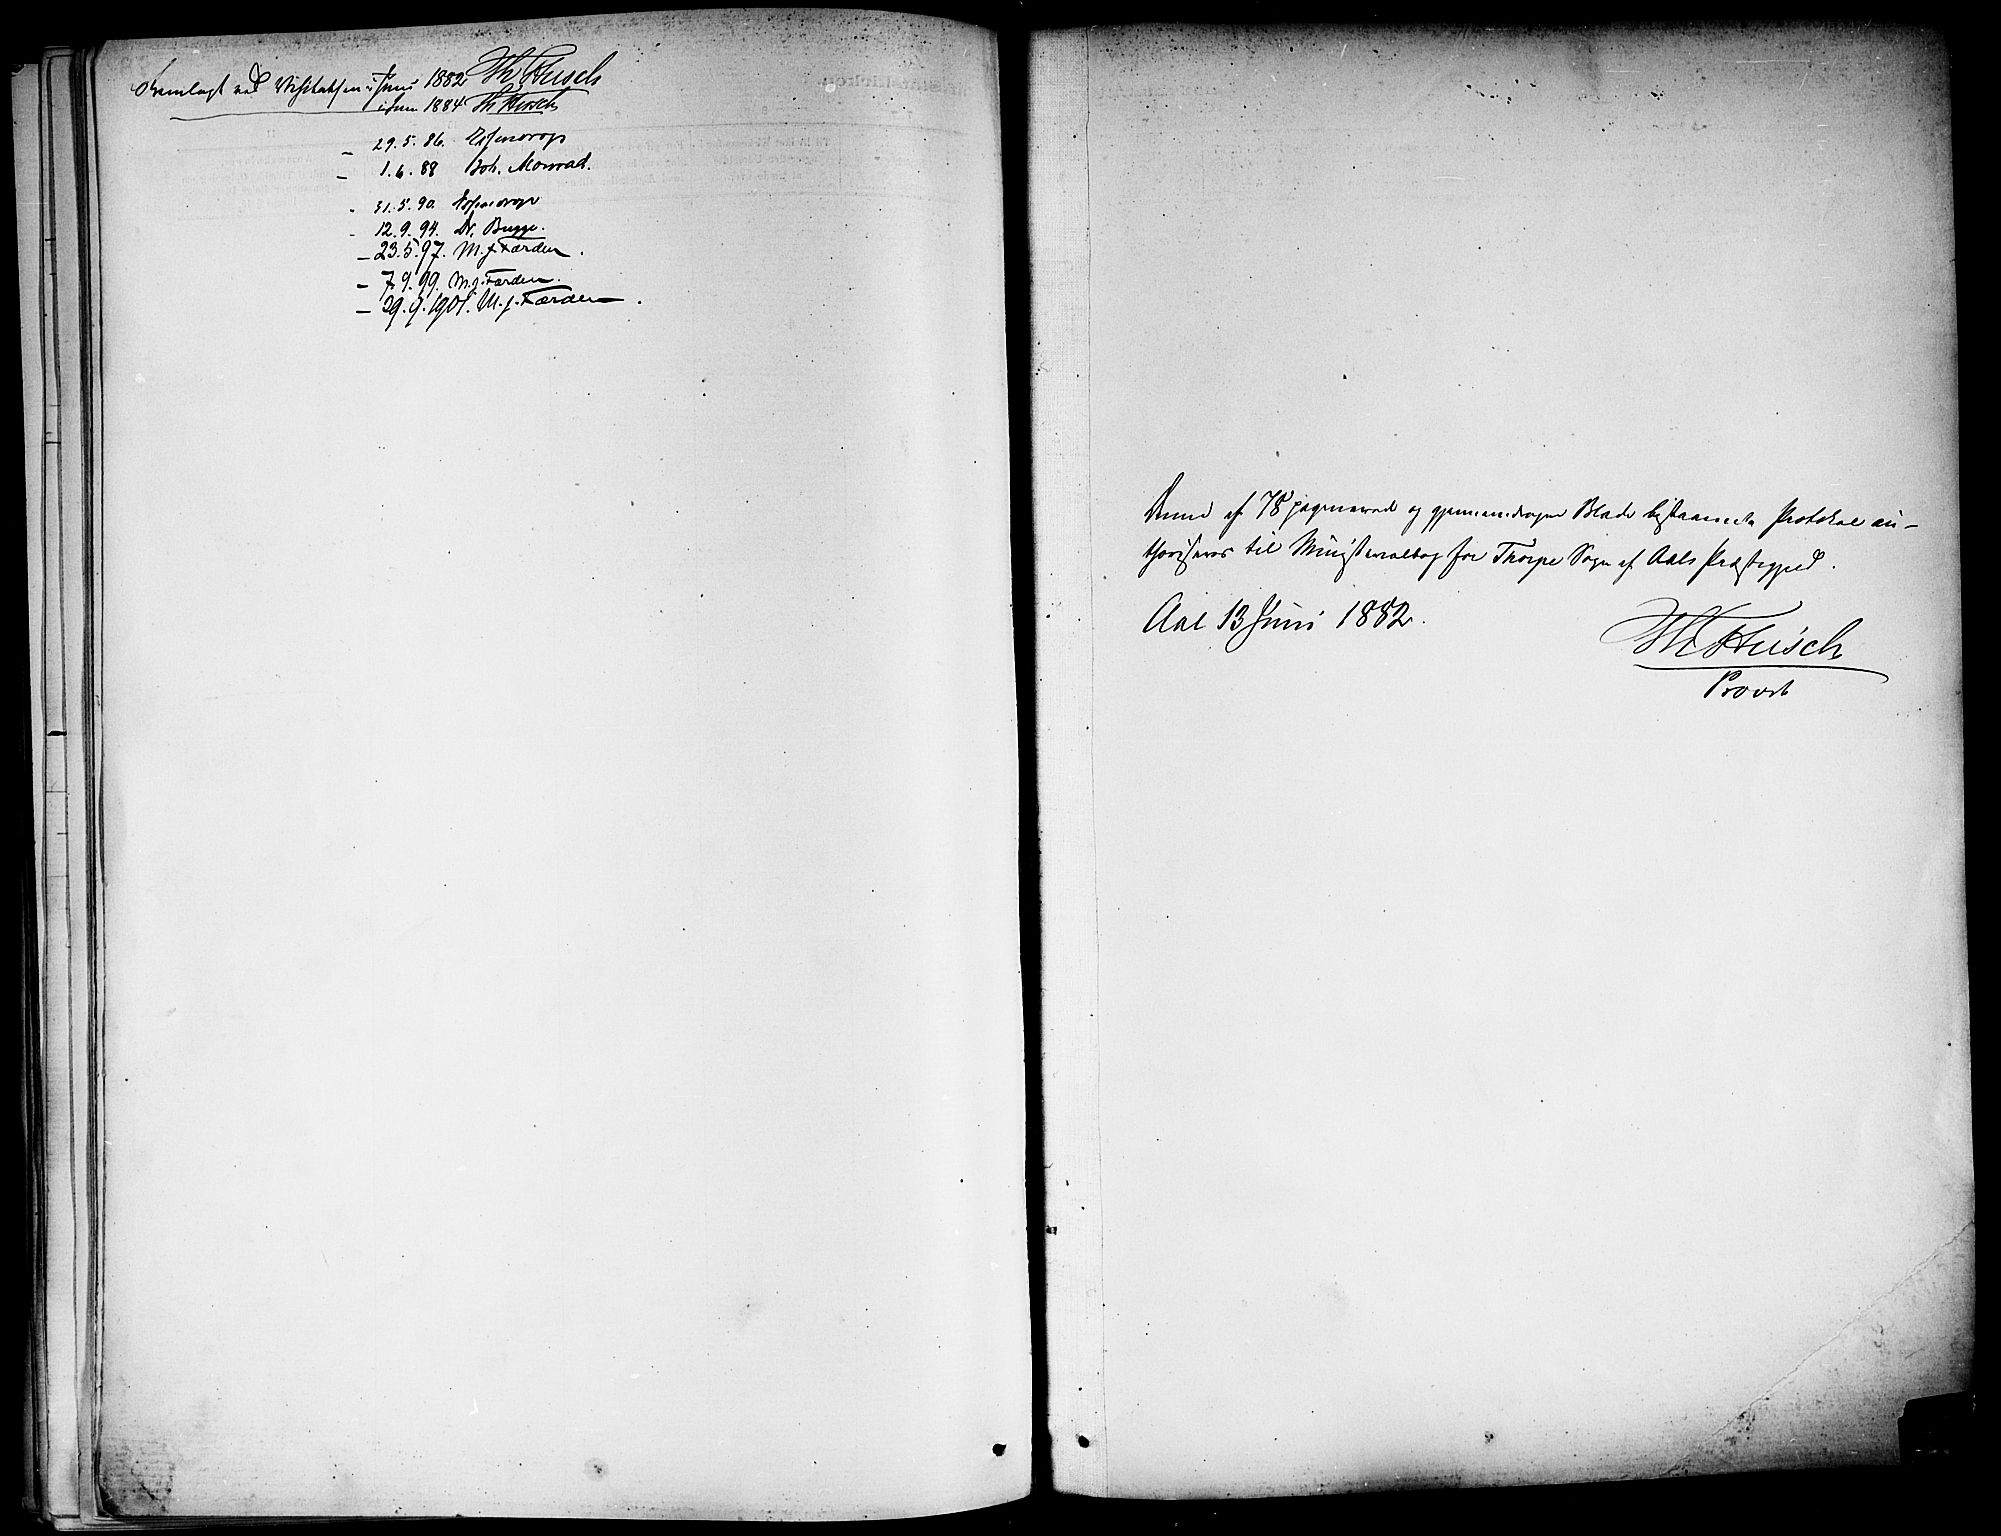 Fremlagt ved Visitatsen i Juni 1882 Th Hirsch
i Juni 1884 Th Hirsch
– 29.5.86. Essendrop
– 1.6.88 Joh. Monrad.
- 31.5.90. Essendrop
- 12.9.94. Dr. Bugge.
– 23.5.97. M. J. Færden.
– 7.9.99. M. J. Færden.
– 29.9.1901. M. J. Færden.
Denne af 78 paginerede og gjennemdragne Blade bestaaende Protokol au-
thoriseres til Ministerialbog for Thorpe Sogn af Aals Præstegjeld.
Aal 13 Juni 1882.
Th Hirsch
Provst